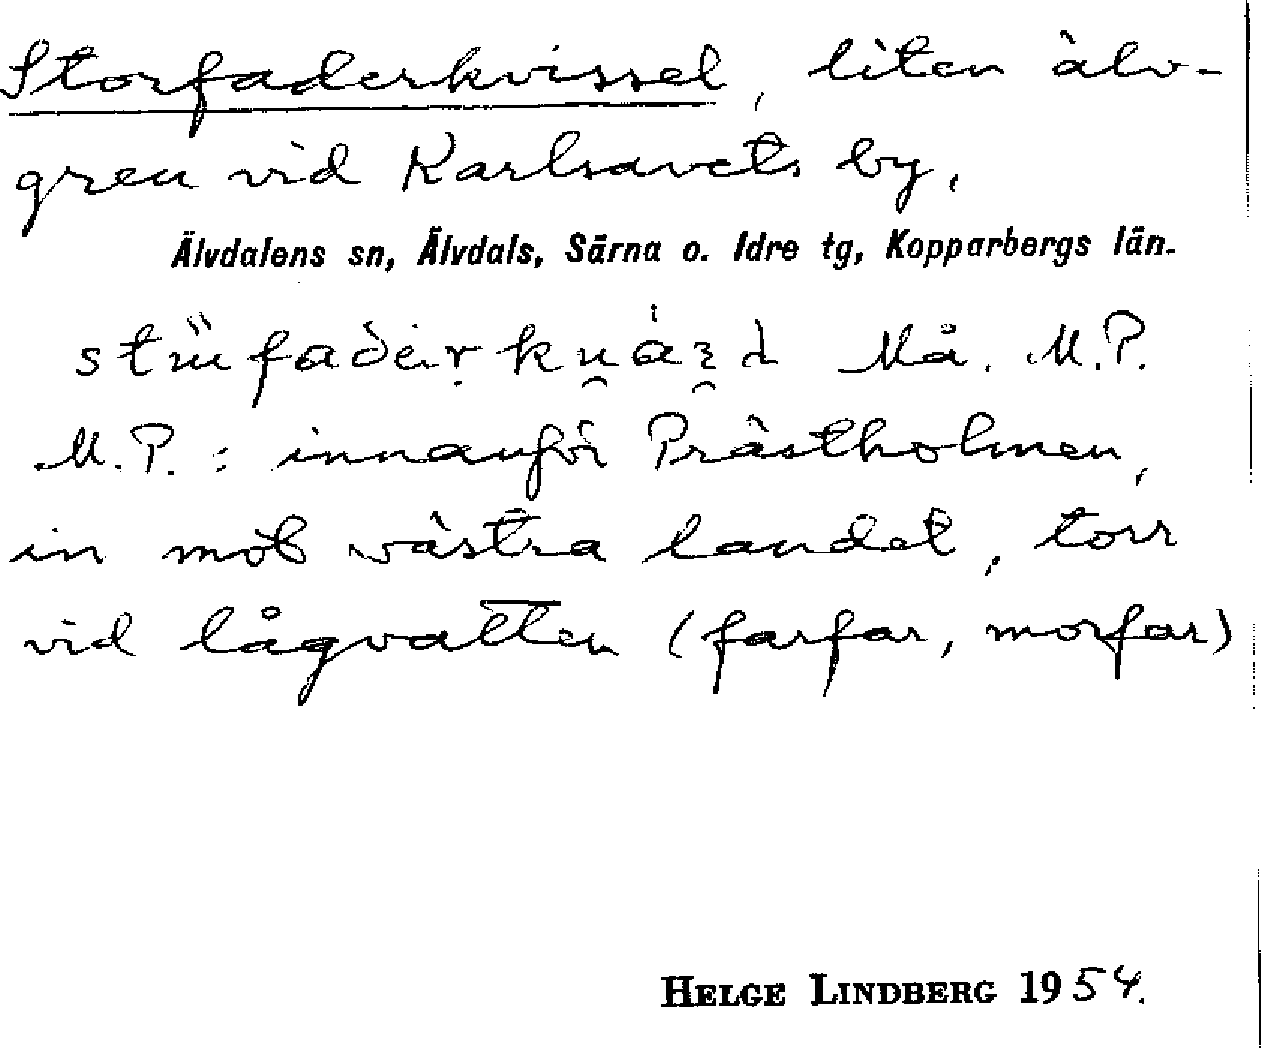 Storfaderkvissel, liten älv-
gren vid Karlsarvets by,
Älvdalens sn, Älvdals, Särna o. Idre tg, Kopparbergs län.
Må. M.P.
M.P.: innanför Prästholmen,
in mot västra landet, torr
vid lågvatten (farfar, morfar)
HELGE LINDBERG 1954.